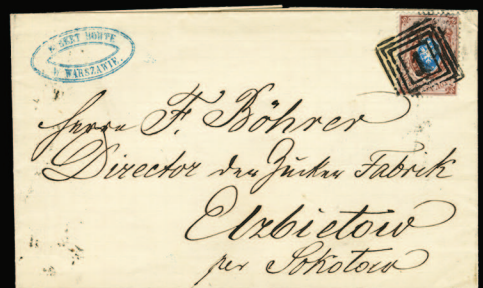 W WARSZAWIE.
Herrn F. Böhrer
Director der Zucker Fabrik
Elzbietow
per Sokołow